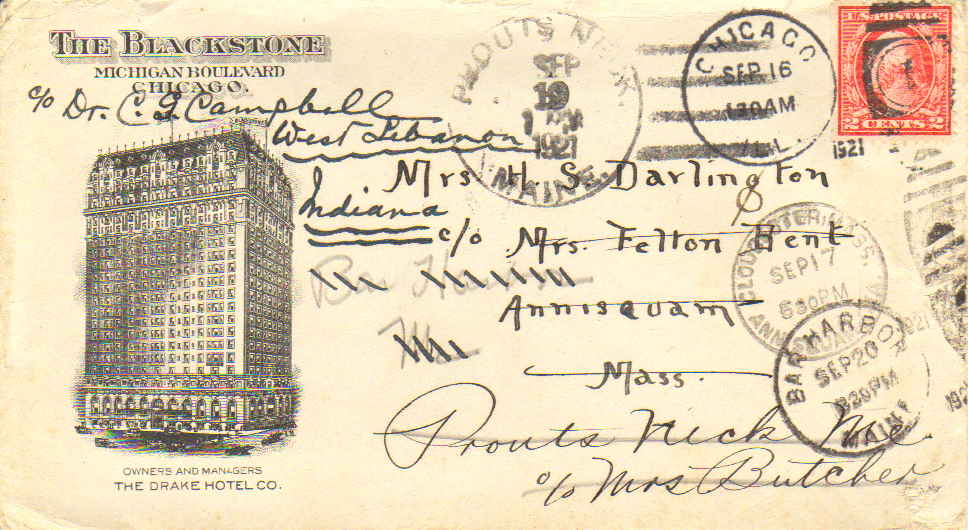 THE BLACKSTONE
MICHIGAN BOULEVARD
CHICAGO.
c/o Dr. C. G. Campbell
West Lebanon
Indiana
PROUTS NECK.
SEP
19
1921
MAINE.
CHICAGO
SEP 16
130AM
ILL.
1921
U.S. POSTAGE
2 CENTS 2
Mrs H. S. Darlington
c/o Mrs. Felton Bent
Annisquam
Mass.
Bar Harbor
Me
GLOUCESTER, MASS.
SEP 17
530PM
ANNISQUAM
BAR HARBOR
SEP 20
830PM
MAINE
1921
192
Prouts Neck Me.
c/o Mrs Butcher
OWNERS AND MANAGERS
THE DRAKE HOTEL CO.